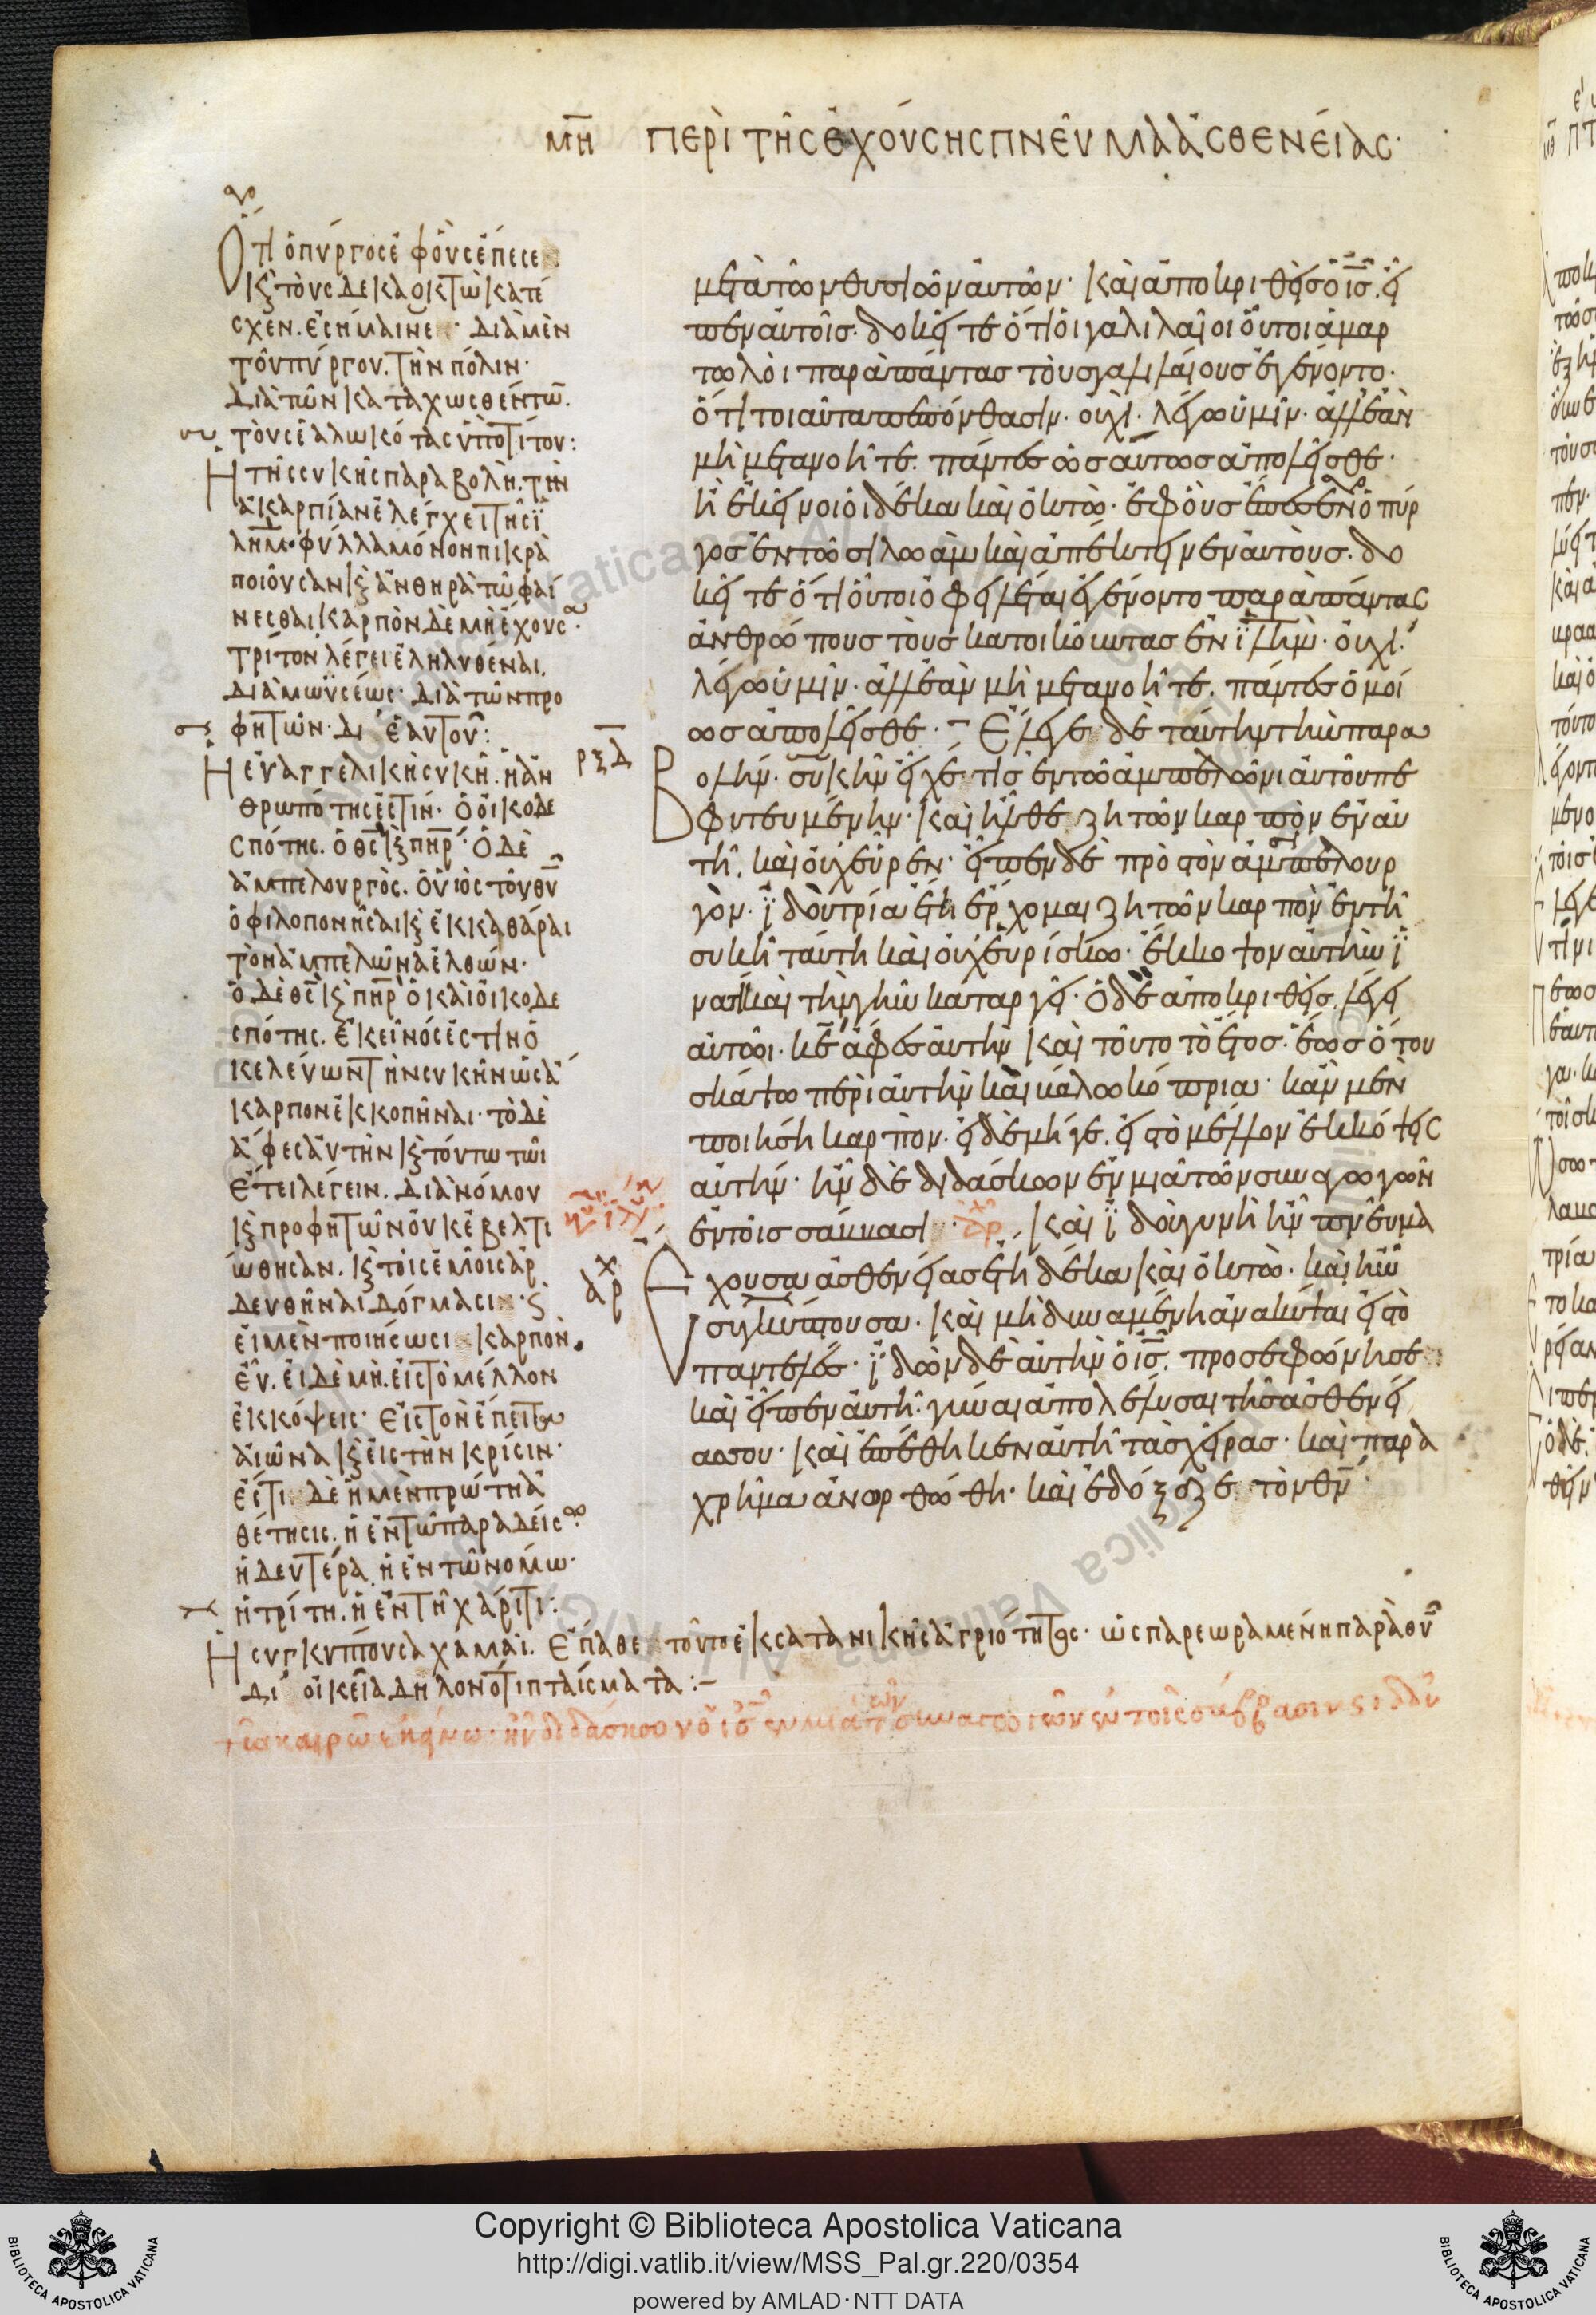 μη περὶ τῆς ἐχούσης πνεῦμα ἀσθενείας·
Ὅτι ὁ πύργος ἐφ οὓς ἔπεσε
κ τοὺς δεκαοκτὼ κατέ
σχεν. ἐσήμαινε διὰ μὲν
τοῦ πύργου. τὴν πόλιν·
διὰ τῶν καταχωσθέντω̅.
τοὺς ἑαλωκότας ὑπὸ τίτου:
Ἡ τῆς συκῆς παραβολὴ. τὴν
ἀκαρπίαν ἐλέγχει τῆς ϊ
λημ· φύλλα μόνον πικρὰ
ποιοῦσαν κ ἀνθηρὰ τῶ φαί
νεσθαι, καρπὸν δὲ μὴ ἐχουσ·
τρίτον λέγει ἐληλυθέναι.
διὰ μωϋσέως· διὰ τῶν προ
φητῶν· δι ἑαυτοῦ:
Ἡ εὐαγγελικὴ συκῆ. ἡ ἀν
θρωπότης ἐστίν· ὁ οἰκοδε
σπότης. ὁ θς κ πηρ· ὁ δὲ
ἀμπελουργὸς. ὁ υἱὸς τοῦ θυ
ὁ φιλοπονῆσαι κ ἐκκαθάραι
τὸν ἀμπελῶνα ἐλθὼν·
ὁ δὲ θς κ πηρ ὁ καὶ οἰκοδε
σπότης. ἐκεῖνός ἐστιν ὁ
κελεύων τὴν συκῆν ὡς ἀ
καρπον ἐκκοπῆναι· τὸ δὲ
ἄφες αὐτὴν κ τοῦτω τῶι
ἔτει λέγειν. διὰ νόμου
κ προφητῶν οὐκ ἐβελτι
ώθησαν. κ τοῖς ἐμοῖς ἀρ
δευθῆναι δόγμασιν·
εἰ μὲν ποιήσωσι καρπὸν
εὖ. εἰ δὲ μὴ. εἰς τὸ μέλλον
ἐκκόψεις· εἰς τὸν ἐπειτα
αἰῶνα κ εἰς τὴν κρίσιν·
ἔστι δὲ ἡ μὲν πρώτη ἀ
θέτησις. ἡ ἐν τῶ παραδείσω·
ἡ δευτέρα ἡ ἐν τῶ νόμω·
ἡ τρίτη. ἡ ἐν τῆ χάριτι:
μετὰ τῶν θυσιῶν αὐτῶν· καὶ ἀποκριθεὶς ὁ ις. εἶ
πεν αὐτοῖς. δοκεῖτε ὅτι οἱ γαλιλαῖοι οὗτοι ἁμαρ
τωλοὶ παρὰ πάντας τοὺς γαλιλαίους ἐγένοντο·
ὅτι τοιαῦτα πεπόνθασιν. οὐχὶ. λέγω ὑμῖν. ἀλλ ἐὰν
μὴ μετανοῆτε. πάντες ὡσαύτως ἀπολεῖσθε·
ἢ ἐκεῖνοι οἱ δέκα καὶ ὀκτὼ. ἐφ οὓς ἔπεσεν ὁ πύρ
γος ἐν τῶ σιλωὰμ καὶ ἀπέκτεινεν αὐτοὺς. δο
κεῖτε ὅτι οὗτοι ὀφειλέται ἐγένοντο παρὰ πάντας
ἀνθρώπους τοὺς κατοικοῦντας ἐν ϊλημ. οὐχί.
λέγω ὑμῖν. ἀλλ ἐὰν μὴ μετανοῆτε. πάντες ὁμοί
ως ἀπολεῖσθε· Ἔλεγε δὲ ταύτην τὴν παρα
ρξδ
Βολήν. συκῆν εἶχέ τις ἐν τῶ ἀμπελῶνι αὐτοῦ πε
φυτευμένην· καὶ ἦλθε ζητῶν καρπὸν ἐν αὐ
τῆ. καὶ οὐχ εὗρεν· εἶπεν δὲ πρὸς τὸν ἀμπελουρ
γὸν. ϊδοὺ τρία ἔτη ἔρχομαι ζητῶν καρπὸν ἐν τῆ
συκῆ ταύτη καὶ οὐχ εὑρίσκω. ἔκκοψον αὐτὴν ϊ
νατί καὶ τὴν γῆν καταργεῖ· ὁ δὲ ἀποκριθεὶς. λέγει
αὐτῶι. κε ἄφες αὐτὴν καὶ τοῦτο τὸ ἔτος. ἕως ὅτου
σκάψω περὶ αὐτὴν καὶ βάλω κόπρια· κἂν μὲν
ποιήση καρπὸν. εἰ δὲ μήγε. εἰς τὸ μέλλον ἐκκόψεις
αὐτήν· ἦν δὲ διδάσκων ἐν μιᾶ τῶν συναγωγῶν
ἐν τοῖς σάββασι· καὶ ϊδοὺ γυνὴ ἦν πνεῦμα
Ἔχουσα ἀσθενείας ἔτη δέκα καὶ ὀκτὼ. καὶ ἦν
συγκύπτουσα. καὶ μὴ δυναμένη ἀνακύψαι εἰς τὸ
παντελές· ϊδὼν δὲ αὐτὴν ὁ ις. προσεφώνησε
καὶ εἶπεν αὐτῆ. γύναι ἀπολέλυσαι τῆς ἀσθενεί
ας σου· καὶ ἐπέθηκεν αὐτῆ τὰς χεῖρας. καὶ παρα
χρῆμα ἀνωρθώθη· καὶ ἐδόξαζε τὸν θν·
Ἡ συγκύπτουσα χαμαὶ. ἔπαθε τοῦτο ἐκ σατανικῆς ἀγριότητος· ὡς παρεωραμένη παρὰ θυ
δι οἰκεῖα δηλονότι πταίσματα:–
τῶ καιρῶ ἐκείνω· ἦν διδάσκων ὁ ις ἐν μιᾶ τῶν συναγωγῶν ἐν τοῖς σάββασιν
Copyright © Biblioteca Apostolica Vaticana
http://digi.vatlib.it/view/MSS_Pal.gr.220/0354
powered by AMLAD·NTT DATA